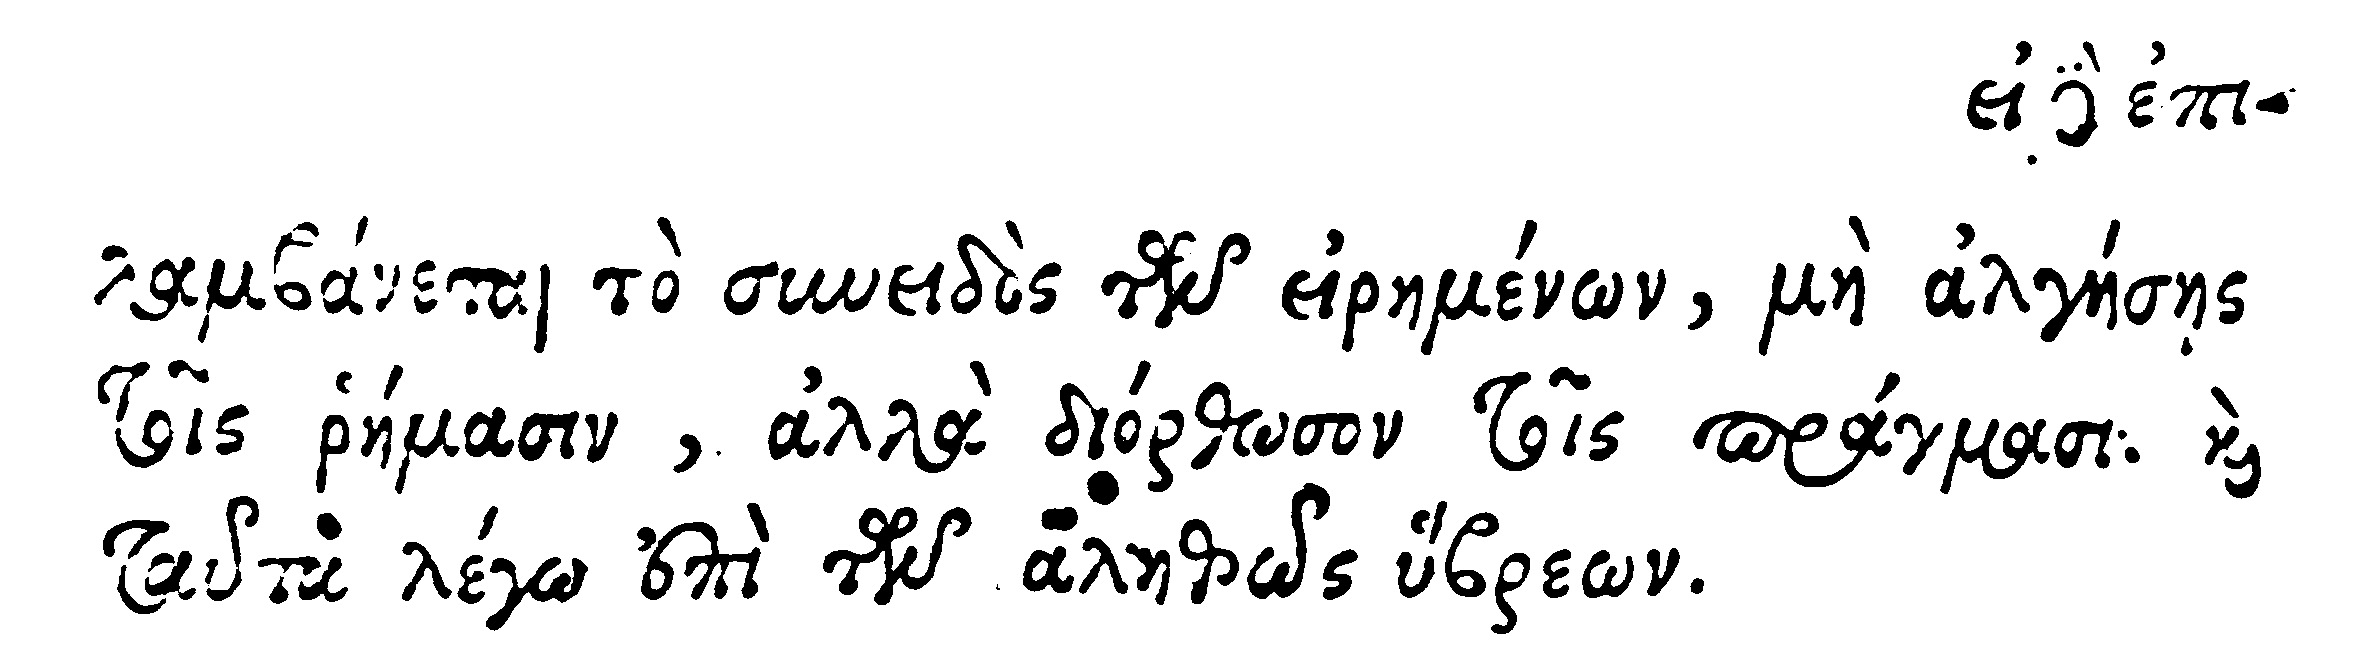 εἰ δὲ ἐπι-
λαμβάνεται τὸ συνειδὸς τῶν εἰρημένων, μὴ ἀλγήσῃς
τοῖς ῥήμασιν, ἀλλὰ διόρθωσον τοῖς πράγμασι. καὶ
ταῦτα λέγω ἐπὶ τῶν ἀληθῶς ὕβρεων.